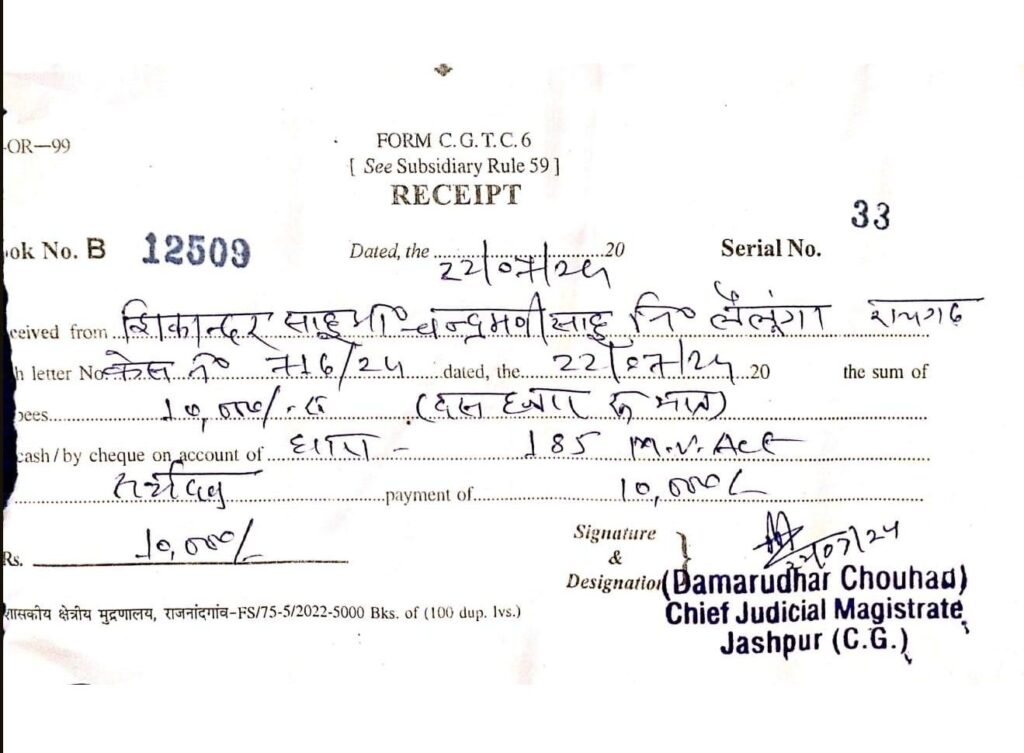 -OR—99
FORM C.G.T.C.6
[ See Subsidiary Rule 59 ]
RECEIPT
33
ok No. B 12509 Dated, the 22/07/24 20 Serial No.
ceived from शिकान्दर साहू चन्द्रमणी साहू नि० लैलूंगा रायगढ़
h letter No. केस नं० 716/24 dated, the 22/07/24 20 the sum of
pees 10,000/- रु (दस हजार रु मात्र)
cash / by cheque on account of धारा - 185 M.V. Act
payment of 10,000/-
Rs. 10,000/-
Signature
&
Designation
22/07/24
(Damarudhar Chouhan)
Chief Judicial Magistrate,
Jashpur (C.G.)
शासकीय क्षेत्रीय मुद्रणालय, राजनांदगांव-FS/75-5/2022-5000 Bks. of (100 dup. lvs.)